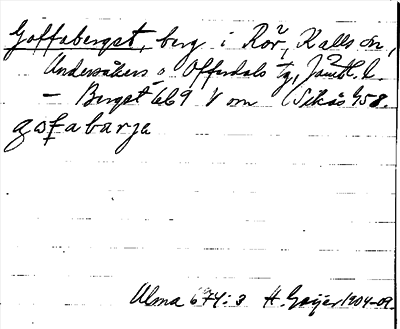 Goffabergst, berg i Rör, Kalls sn,
Undersåkers o Offerdals tg, Jämtl. l.
— Bergst 669 V om
gofabarja
Ulma 674:3 H. Geijer 1904-09.